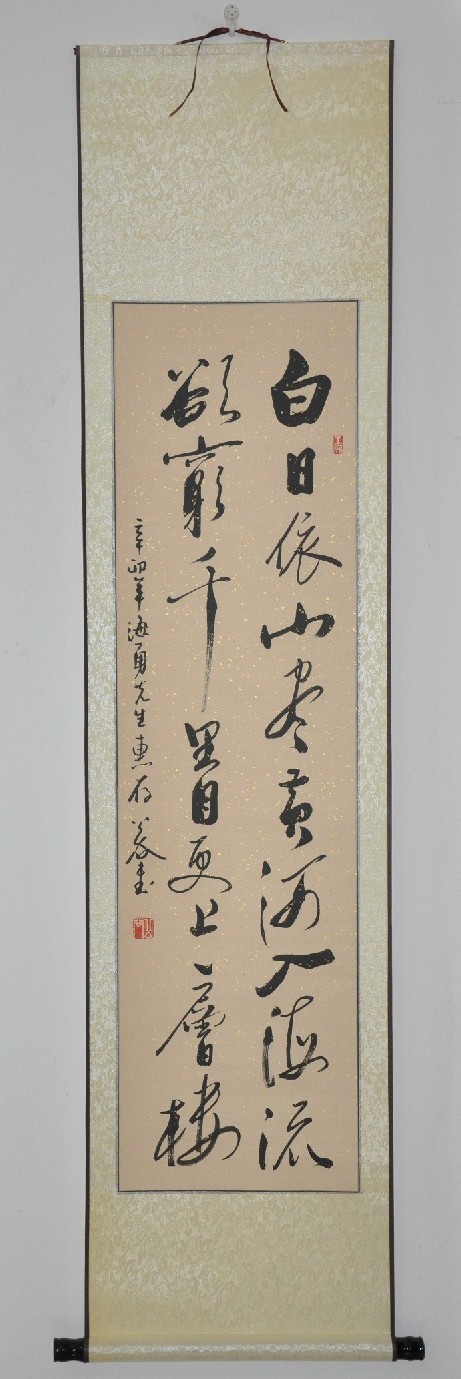 白日依山尽黄河入海流
欲穷千里目更上一層楼
辛卯年海勇先生惠存